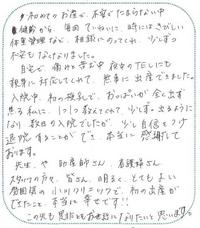 初めてのお産で、不安でたまらない中
健診から、毎回ていねいに、時にはきびしい
体重管理など、相談にのってくれ、少しずつ
不安もなくなりました。
自宅で痛みと苦しむ中 夜中のTELにも
親身に対応してくれて、無事に出産できました。
入院中、初の授乳で、おっぱいが全く出ず
焦る私に、1つ1つ教えてくれて 少しずつ出るように
なり 数日の入院でしたが 少し自信をつけ
退院することができ 本当に感謝して
おります。
先生や 助産師さん、看護師さん
スタッフの方々、皆さん、明るく、とてもよい
雰囲気の小川クリニックで、初の出産が
できたこと、本当に幸せです!!
この先も是非ともお世話になりたいと思います。